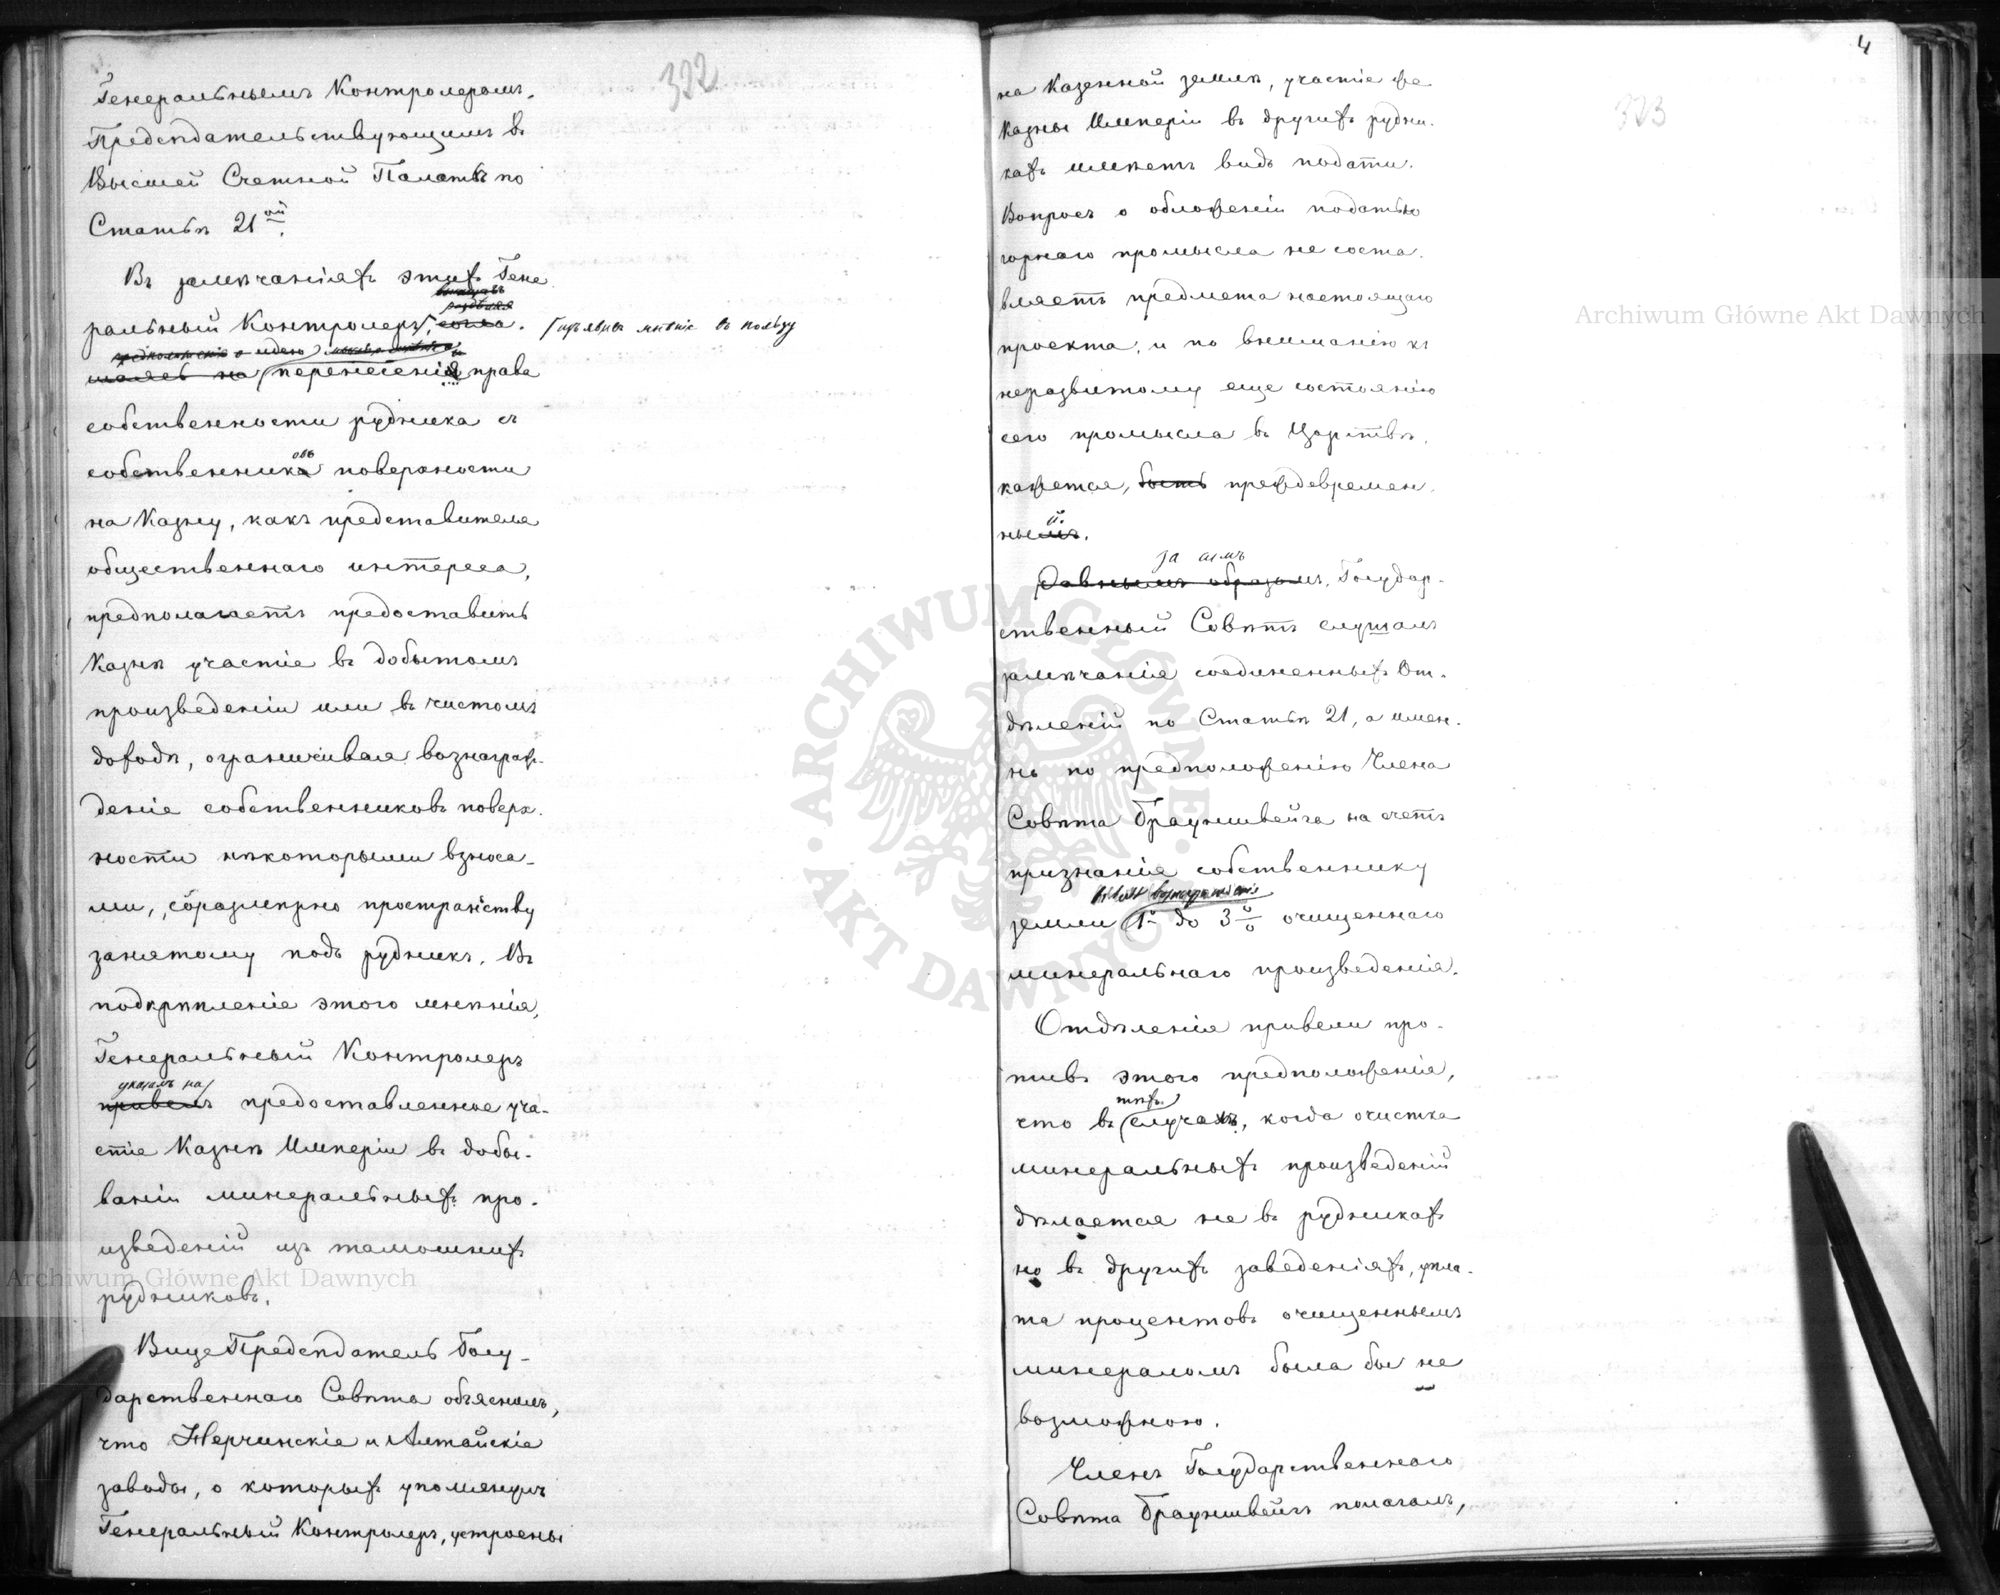 322
Генеральнымъ Контролеромъ,
Предсѣдательствующимъ въ
Высшей Счетной Палатѣ по
Статьѣ 21ой.
Въ замѣчаніяхъ этихъ Гене
ральный Контролеръ, изъявивъ мнѣніе въ пользу
идею перенесенія права
собственности рудника съ
собственниковъ поверхности
на Казну, какъ представителя
общественнаго интереса,
предполагаетъ предоставить
Казнѣ участіе въ добытомъ
произведеніи или въ чистомъ
доходѣ, ограничивая вознаграж-
деніе собственниковъ поверх-
ности нѣкоторыми взноса-
ми, соразмѣрно пространству
занятому подъ рудникъ. Въ
подкрѣпленіе этого мнѣнія,
Генеральный Контролеръ
указалъ на
привелъ предоставленное уча-
стіе Казнѣ Имперіи въ добы-
ваніи минеральныхъ про-
изведеній изъ тамошнихъ
рудниковъ.
Вице Предсѣдатель Госу-
дарственнаго Совѣта объяснилъ,
что Нерчинскіе и Алтайскіе
заводы, о которыхъ упомянулъ
Генеральный Контролеръ, устроены
4
323
на Казенной землѣ, участіе же
Казны Имперіи въ другихъ рудни-
кахъ имѣетъ видъ подати.
Вопросъ о обложеніи податью
горнаго промысла не соста-
вляетъ предмета настоящаго
проекта, и по вниманію къ
неразвитому еще состоянію
сего промысла въ Царствѣ,
кажется, быть преждевремен-
ный.
За симъ
Равнымъ образомъ, Государ-
ственный Совѣтъ слушалъ
замѣчанія соединенныхъ От-
дѣленій по Статьѣ 21, а имен-
но по предположенію Члена
Совѣта Брауншвейга на счетъ
признанія собственнику
земли 1% до 3% очищеннаго
минеральнаго произведенія.
Отдѣленія привели про-
тивъ этого предположенія,
тѣхъ
что въ случаяхъ, когда очистка
минеральныхъ произведеній
дѣлается не въ рудникахъ
но въ другихъ заведеніяхъ, упла-
та процентовъ очищеннымъ
минераломъ была бы не
возможною.
Членъ Государственнаго
Совѣта Брауншвейгъ полагалъ,
ARCHIWUM GŁÓWNE AKT DAWNYCH
Archiwum Główne Akt Dawnych
Archiwum Główne Akt Dawnych